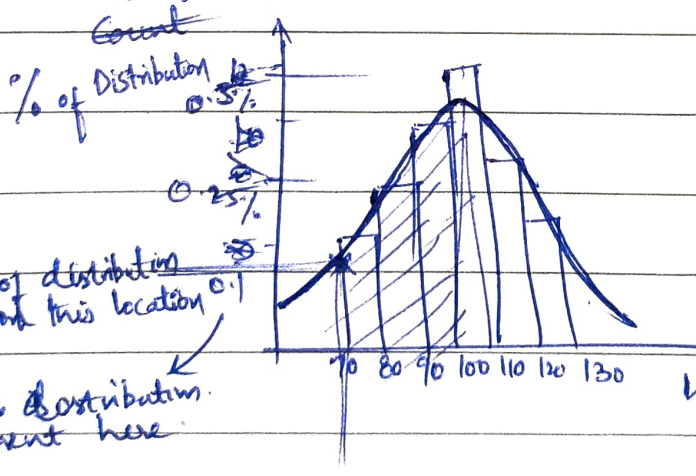 Count
% of Distribution
0.5%
0.25%
of distribution
this location 0.1
distribution.
here.
70 80 90 100 110 120 130